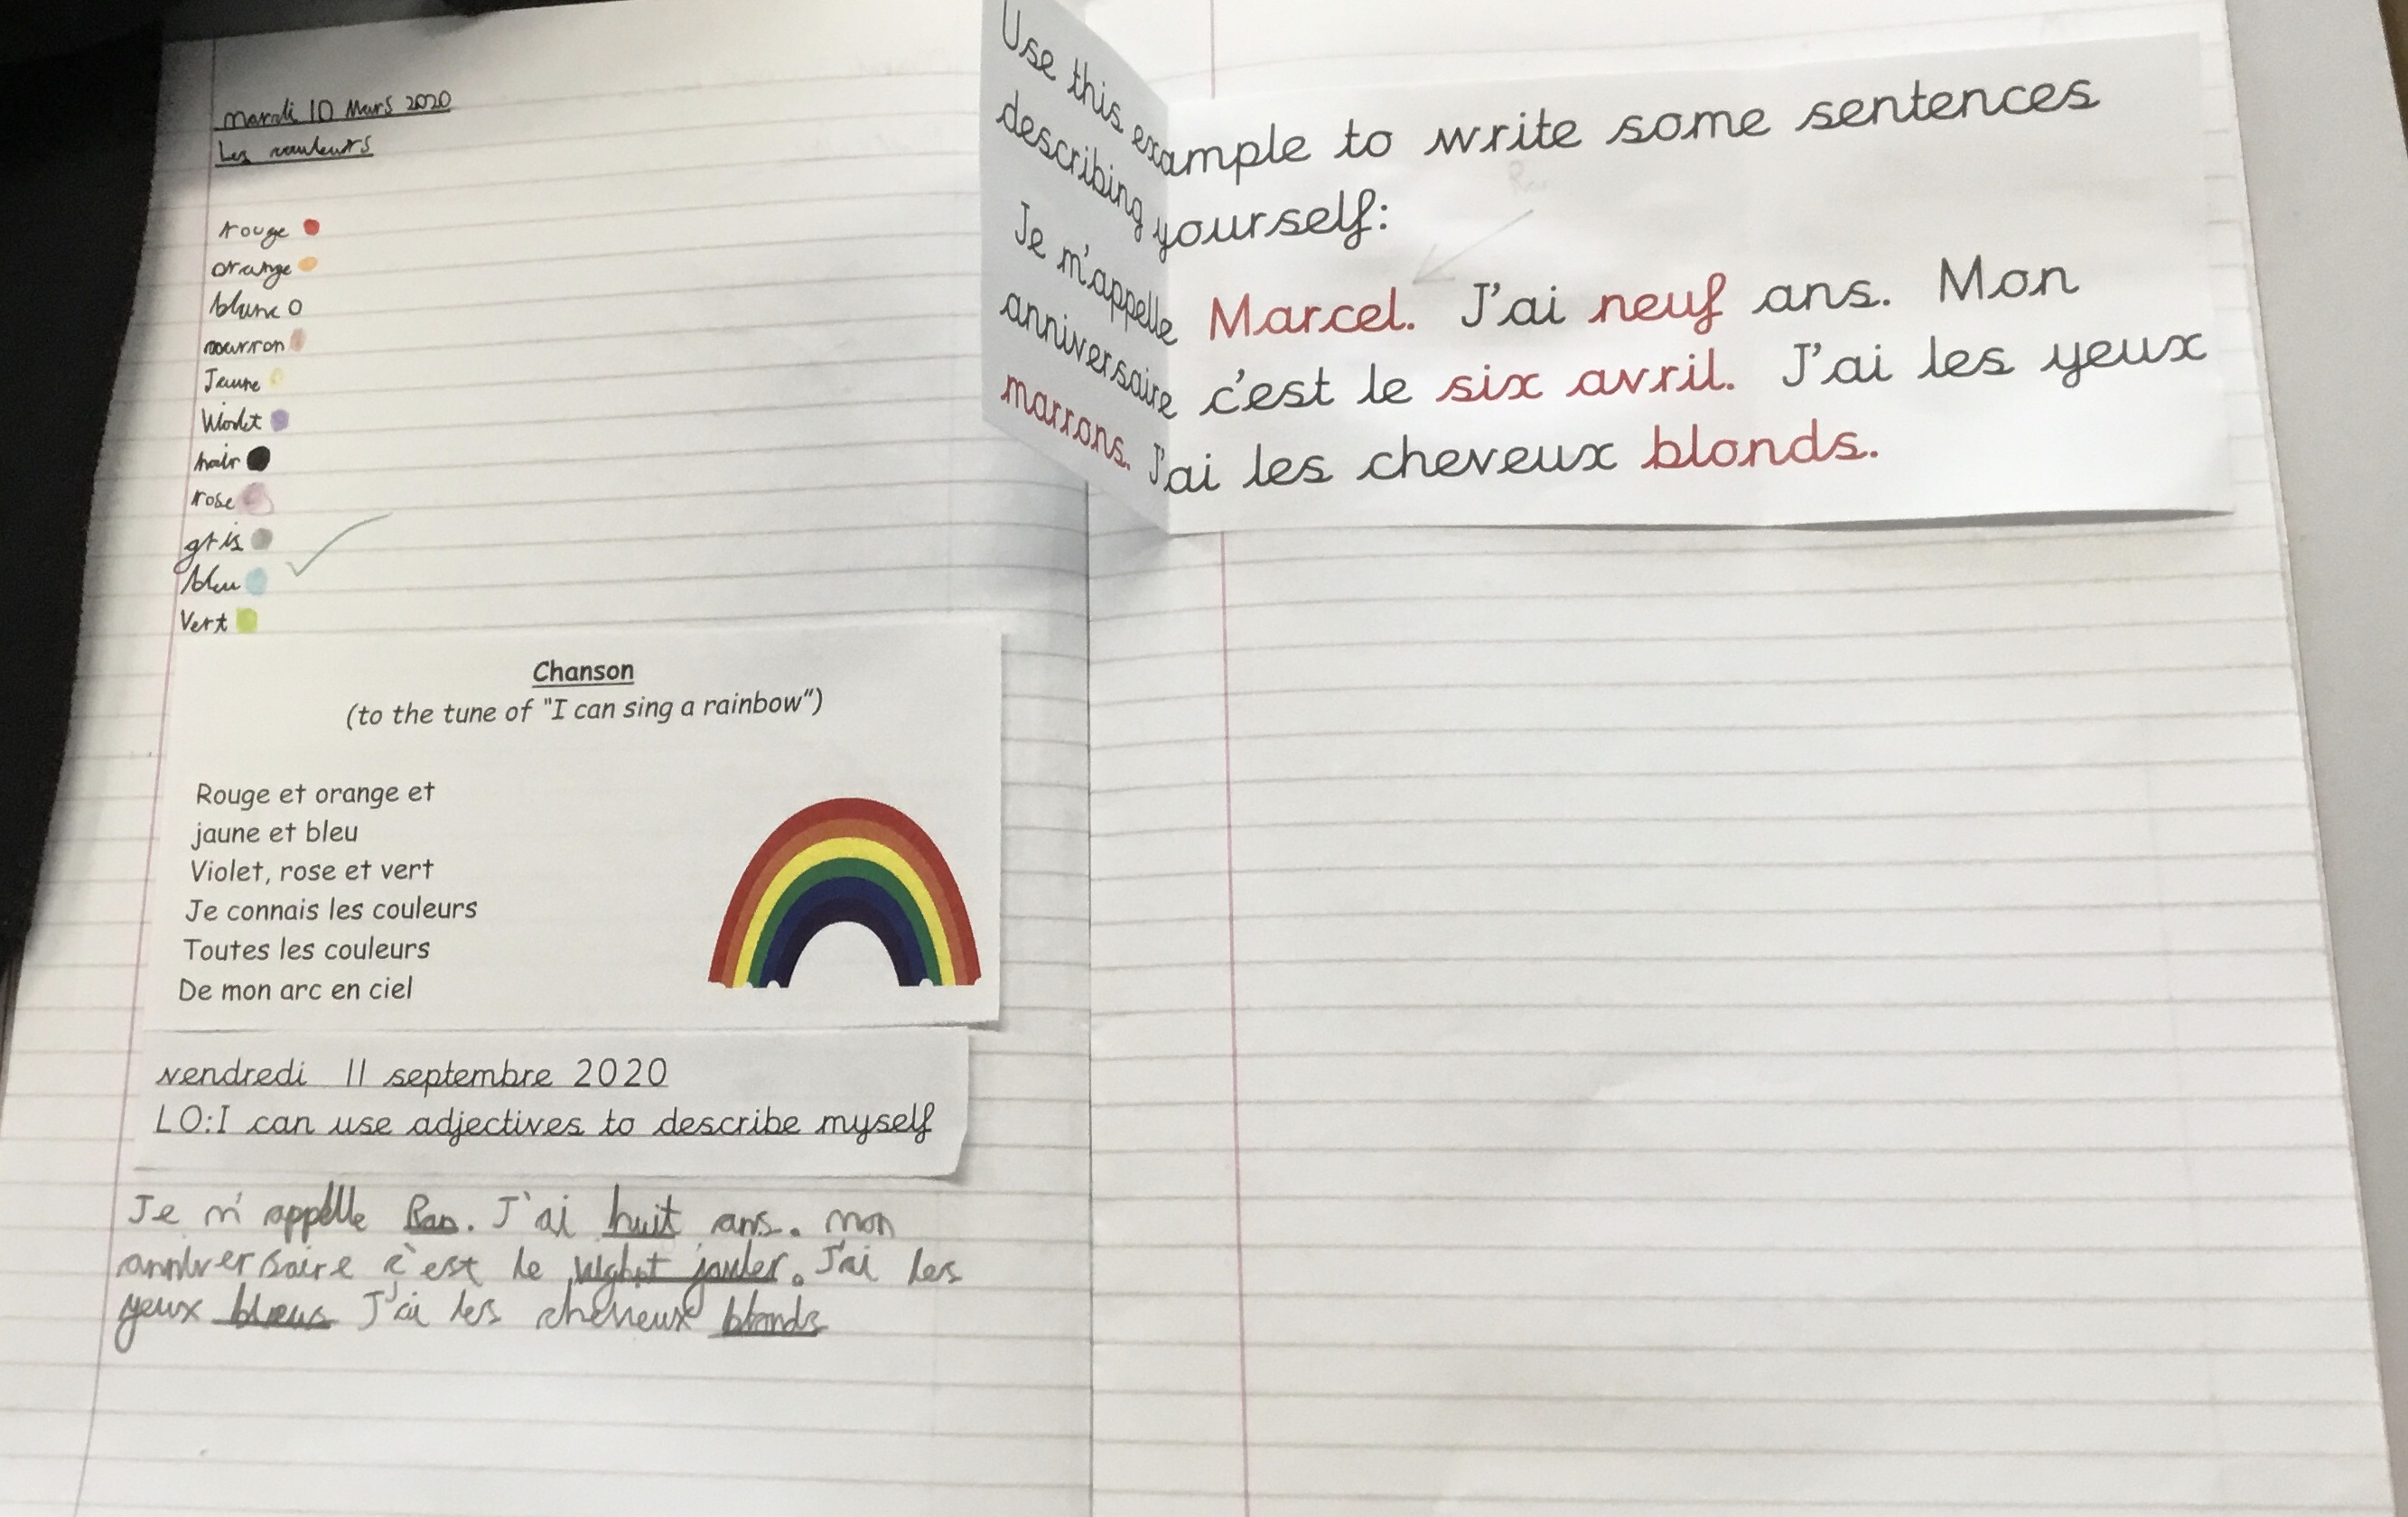 mardi 10 Mars 2020
Les couleurs
rouge
orange
blanc
marron
Jaune
Violet
noir
rose
gris
bleu
Vert
Chanson
(to the tune of "I can sing a rainbow")
Rouge et orange et
jaune et bleu
Violet, rose et vert
Je connais les couleurs
Toutes les couleurs
De mon arc en ciel
vendredi 11 septembre 2020
LO:I can use adjectives to describe myself
Je m'appelle . J'ai huit ans. mon
anniversaire c'est le . J'ai les
yeux bleus J'ai les cheveux blonds
Use this example to write some sentences
describing yourself:
Je m'appelle Marcel. J'ai neuf ans. Mon
anniversaire c'est le six avril. J'ai les yeux
marrons. J'ai les cheveux blonds.